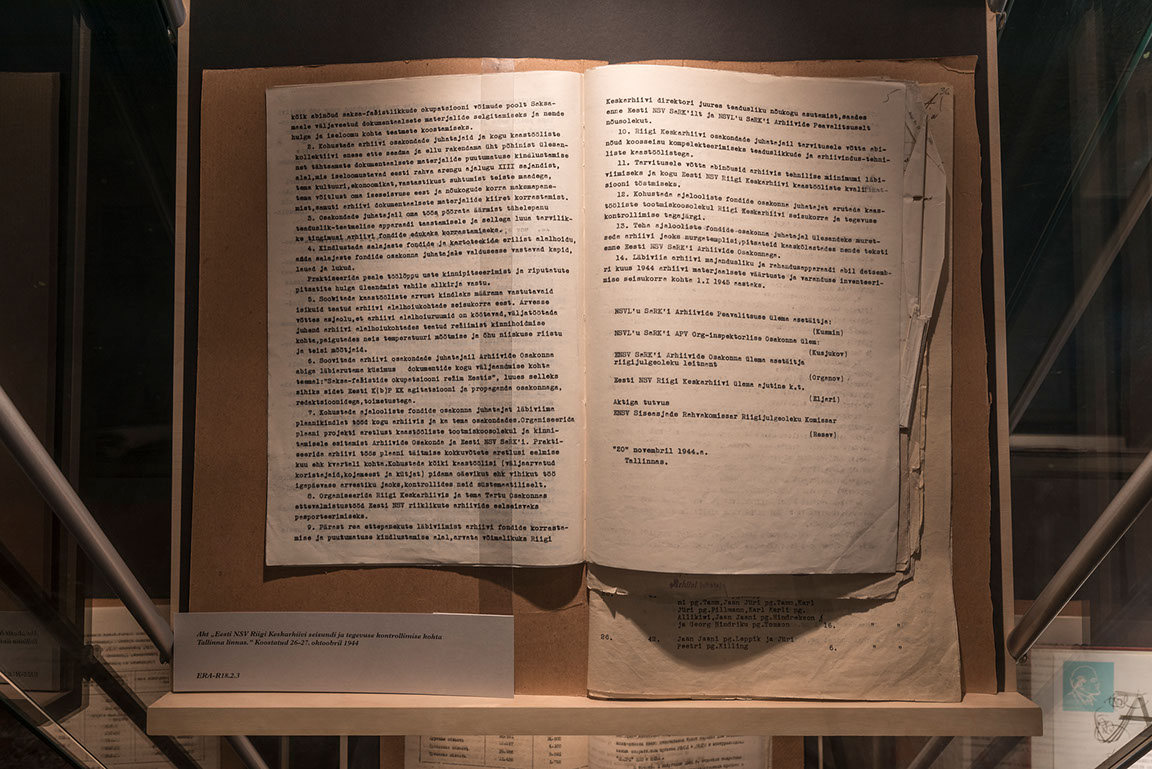 kõik abinõud saksa-fašistlikkude okupatsiooni võimude poolt Saksa-
maale väljaveetud dokumentaalsete materjalide selgitamiseks ja nende
hulga ja iseloomu kohta teatmete koostamiseks.
2. Kohustada arhiivi osakondade juhatajaid ja kogu kaastööliste
kollektiivi enese ette seadma ja ellu rakendama üht põhinist ülesan-
net tähtsamate dokumentaalsete materjalide puutumatuse kindlustamise
alal, mis iseloomustavad eesti rahva arengu ajalugu XIII sajandist,
tema kultuuri, ökonoomikat, vastastikust suhtumist teiste maadega,
tema võitlust oma iseseisvuse eest ja nõukogude korra maksmapane-
mist, samuti arhiivi dokumentaalsete materjalide kiiret korrastamist.
3. Osakondade juhatajail oma töös pöörata äärmist tähelepanu
teaduslik-teatmelise apparaadi taastamisele ja sellega luua tarvilik-
ke tingimusi arhiivi fondide edukaks korrastamiseks.
4. Kindlustada salajaste fondide ja kartoteekide erilist alalhoidu,
anda salajaste fondide osakonna juhatajale valdusesse vastavad kapid,
lauad ja lukud.
Praktiseerida peale töölõppu uste kinnipitseerimist ja riputatute
pitsatite hulga üleandmist vahile allkirja vastu.
5. Soovitada kaastööliste arvust kindlaks määrama vastutavaid
isikuid teatud arhiivi alalhoiukohtade seisukorra eest. Arvesse
võttes asjaolu, et arhiivi alalhoiuruumid on köetavad, väljatöötada
juhend arhiivi alalhoiukohtades teatud režiimist kinnihoidmise
kohta, paigutades neis temperatuuri mõõtmise ja õhu niiskuse riistu
ja teisi mõõtjaid.
6. Soovitada arhiivi osakondade juhatajail Arhiivide Osakonna
abiga läbiarutama küsimus dokumentide kogu väljaandmise kohta
teemal: "Saksa-fašistide okupatsiooni režim Eestis", luues selleks
sihiks sidet Eesti K(b)P KK agitatsiooni ja propaganda osakonnaga,
redaktsioonidega, toimetustega.
7. Kohustada ajalooliste fondide osakonna juhatajat läbiviima
plaanikindlat tööd kogu arhiivis ja ka tema osakondades. Organiseerida
plaani projekti arutlust kaastööliste tootmiskoosolekul ja kinni-
tamisele esitamist Arhiivide Osakonda ja Eesti NSV SARK'i. Prakti-
seerida arhiivi töös plaani täitmise kokkuvõtete arutlusi eelmise
kuu ehk kvartali kohta. Kohustada kõiki kaastöölisi (väljaarvatud
koristajaid, kojameest ja kütjat) pidama päevikut ehk vihikut töö
igapäevase arvestiku jaoks, kontrollides neid süstemaatiliselt.
8. Organiseerida Riigi Keskarhiivis ja tema Tartu Osakonnas
ettevalmistustööd Eesti NSV riiklikute arhiivide eelseisvaks
pasporteerimiseks.
9. Pärast rea ettepanekute läbiviimist arhiivi fondide korrasta-
mise ja puutumatuse kindlustamise alal, arvata võimalikuks Riigi
Keskarhiivi direktori juures teadusliku nõukogu asutamist, saades
enne Eesti NSV SARK'ilt ja NSVL'u SARK'i Arhiivide Peavalitsuselt
nõusolekut.
10. Riigi Keskarhiivi osakondade juhatajail tarvitusele võtta abi-
nõud koosseisu komplekteerimiseks teaduslikkude ja arhiivindus-tehni-
liste kaastöölistega.
11. Tarvitusele võtta abinõusid arhiivis tehnilise miinimumi läbi-
viimiseks ja kogu Eesti NSV Riigi Keskarhiivi kaastööliste kvalifikat-
siooni tõstmiseks.
12. Kohustada ajalooliste fondide osakonna juhatajat arutada kaas-
tööliste tootmiskoosolekul Riigi Keskarhiivi seisukorra ja tegevuse
kontrollimise tagajärgi.
13. Teha ajalooliste fondide osakonna juhatajal ülesandeks muret-
seda arhiivi jaoks nurgatemplisi, pitsateid kooskõlastades nende teksti
enne Eesti NSV SARK'i Arhiivide Osakonnaga.
14. Läbiviia arhiivi majandusliku ja rahandusapparaadi abil detsemb-
ri kuus 1944 arhiivi materjaalsete väärtuste ja varanduse inventeeri-
mise seisukorra kohta 1.I 1945 aastaks.
NSVL'u SARK'i Arhiivide Peavalitsuse ülema asetäitja:
(Kusmin)
NSVL'u SARK'i APV Org-inspektorlise Osakonna ülem:
(Kusjukov)
ENSV SARK'i Arhiivide Osakonna ülema asetäitja
riigijulgeoleku leitnant
(Organov)
Eesti NSV Riigi Keskarhiivi ülema ajutine k.t.
(Eljari)
Aktiga tutvus
ENSV Sisemasjade Rahvakomissar Riigijulgeoleku Komissar
(Resev)
"20" novembril 1944.a.
Tallinnas.
Arhiivi juhataja
mi pg.Tamm, Jaan Jüri pg.Tamm, Karl
Jüri pg.Pillmann, Karl Karli pg.
Allikivi, Jaan Jaani pg.Hindrekson j
ja Georg Hindriku pg.Tomson 16. " "
26. 42. Jaan Jaani pg.Leppik ja Jüri
Peetri pg.Killing 6. " "
Akt „Eesti NSV Riigi Keskarhiivi seisundi ja tegevuse kontrollimise kohta
Tallinna linnas." Koostatud 26–27. oktoobril 1944
ERA-R18.2.3